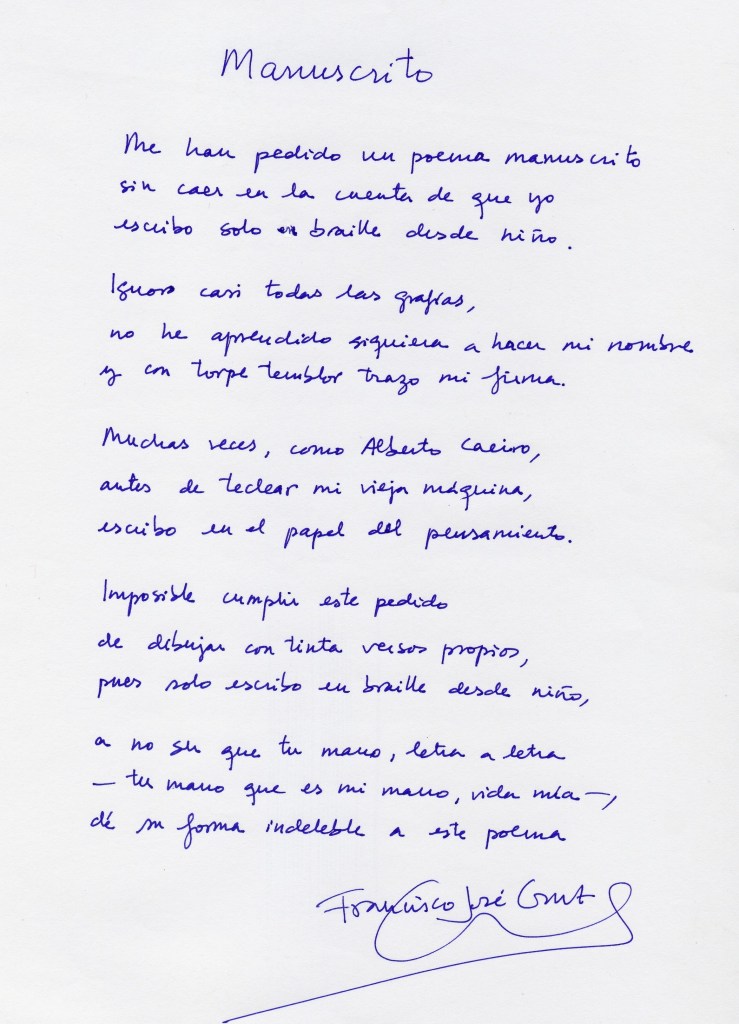 Manuscrito
Me han pedido un poema manuscrito
sin caer en la cuenta de que yo
escribo solo en braille desde niño.
Ignoro casi todas las grafías,
no he aprendido siquiera a hacer mi nombre
y con torpe temblor trazo mi firma.
Muchas veces, como Alberto Caeiro,
antes de teclear mi vieja máquina,
escribo en el papel del pensamiento.
Imposible cumplir este pedido
de dibujar con tinta versos propios,
pues solo escribo en braille desde niño,
a no ser que tu mano, letra a letra
— tu mano que es mi mano, vida mía —,
dé su forma indeleble a este poema
Francisco José Cruz